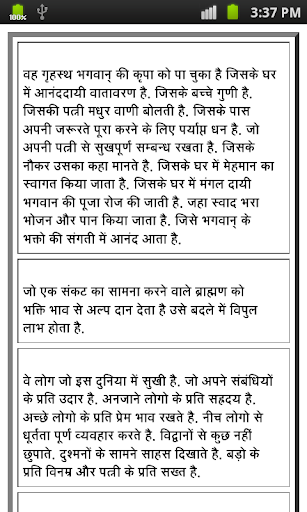 100%
3:37 PM
वह गृहस्थ भगवान् की कृपा को पा चुका है जिसके घर
में आनंददायी वातावरण है. जिसके बच्चे गुणी है.
जिसकी पत्नी मधुर वाणी बोलती है. जिसके पास
अपनी जरूरते पूरा करने के लिए पर्याप्त धन है. जो
अपनी पत्नी से सुखपूर्ण सम्बन्ध रखता है. जिसके
नौकर उसका कहा मानते है. जिसके घर में मेहमान का
स्वागत किया जाता है. जिसके घर में मंगल दायी
भगवान की पूजा रोज की जाती है. जहा स्वाद भरा
भोजन और पान किया जाता है. जिसे भगवान् के
भक्तो की संगती में आनंद आता है.
जो एक संकट का सामना करने वाले ब्राह्मण को
भक्ति भाव से अल्प दान देता है उसे बदले में विपुल
लाभ होता है.
वे लोग जो इस दुनिया में सुखी है. जो अपने संबंधियों
के प्रति उदार है. अनजाने लोगो के प्रति सह्रदय है.
अच्छे लोगो के प्रति प्रेम भाव रखते है. नीच लोगो से
धूर्तता पूर्ण व्यवहार करते है. विद्वानों से कुछ नहीं
छुपाते. दुश्मनों के सामने साहस दिखाते है. बड़ो के
प्रति विनम्र और पत्नी के प्रति सख्त है.